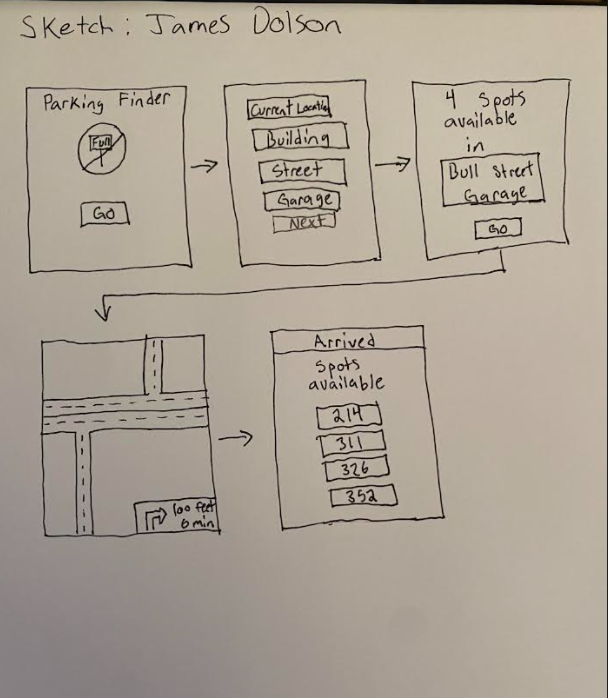 Sketch: James Dolson
Parking Finder
Full
GO
Current Location
Building
Street
Garage
Next
4 Spots
available
in
Bull Street
Garage
GO
100 feet
0 min
Arrived
Spots
available
214
311
326
352